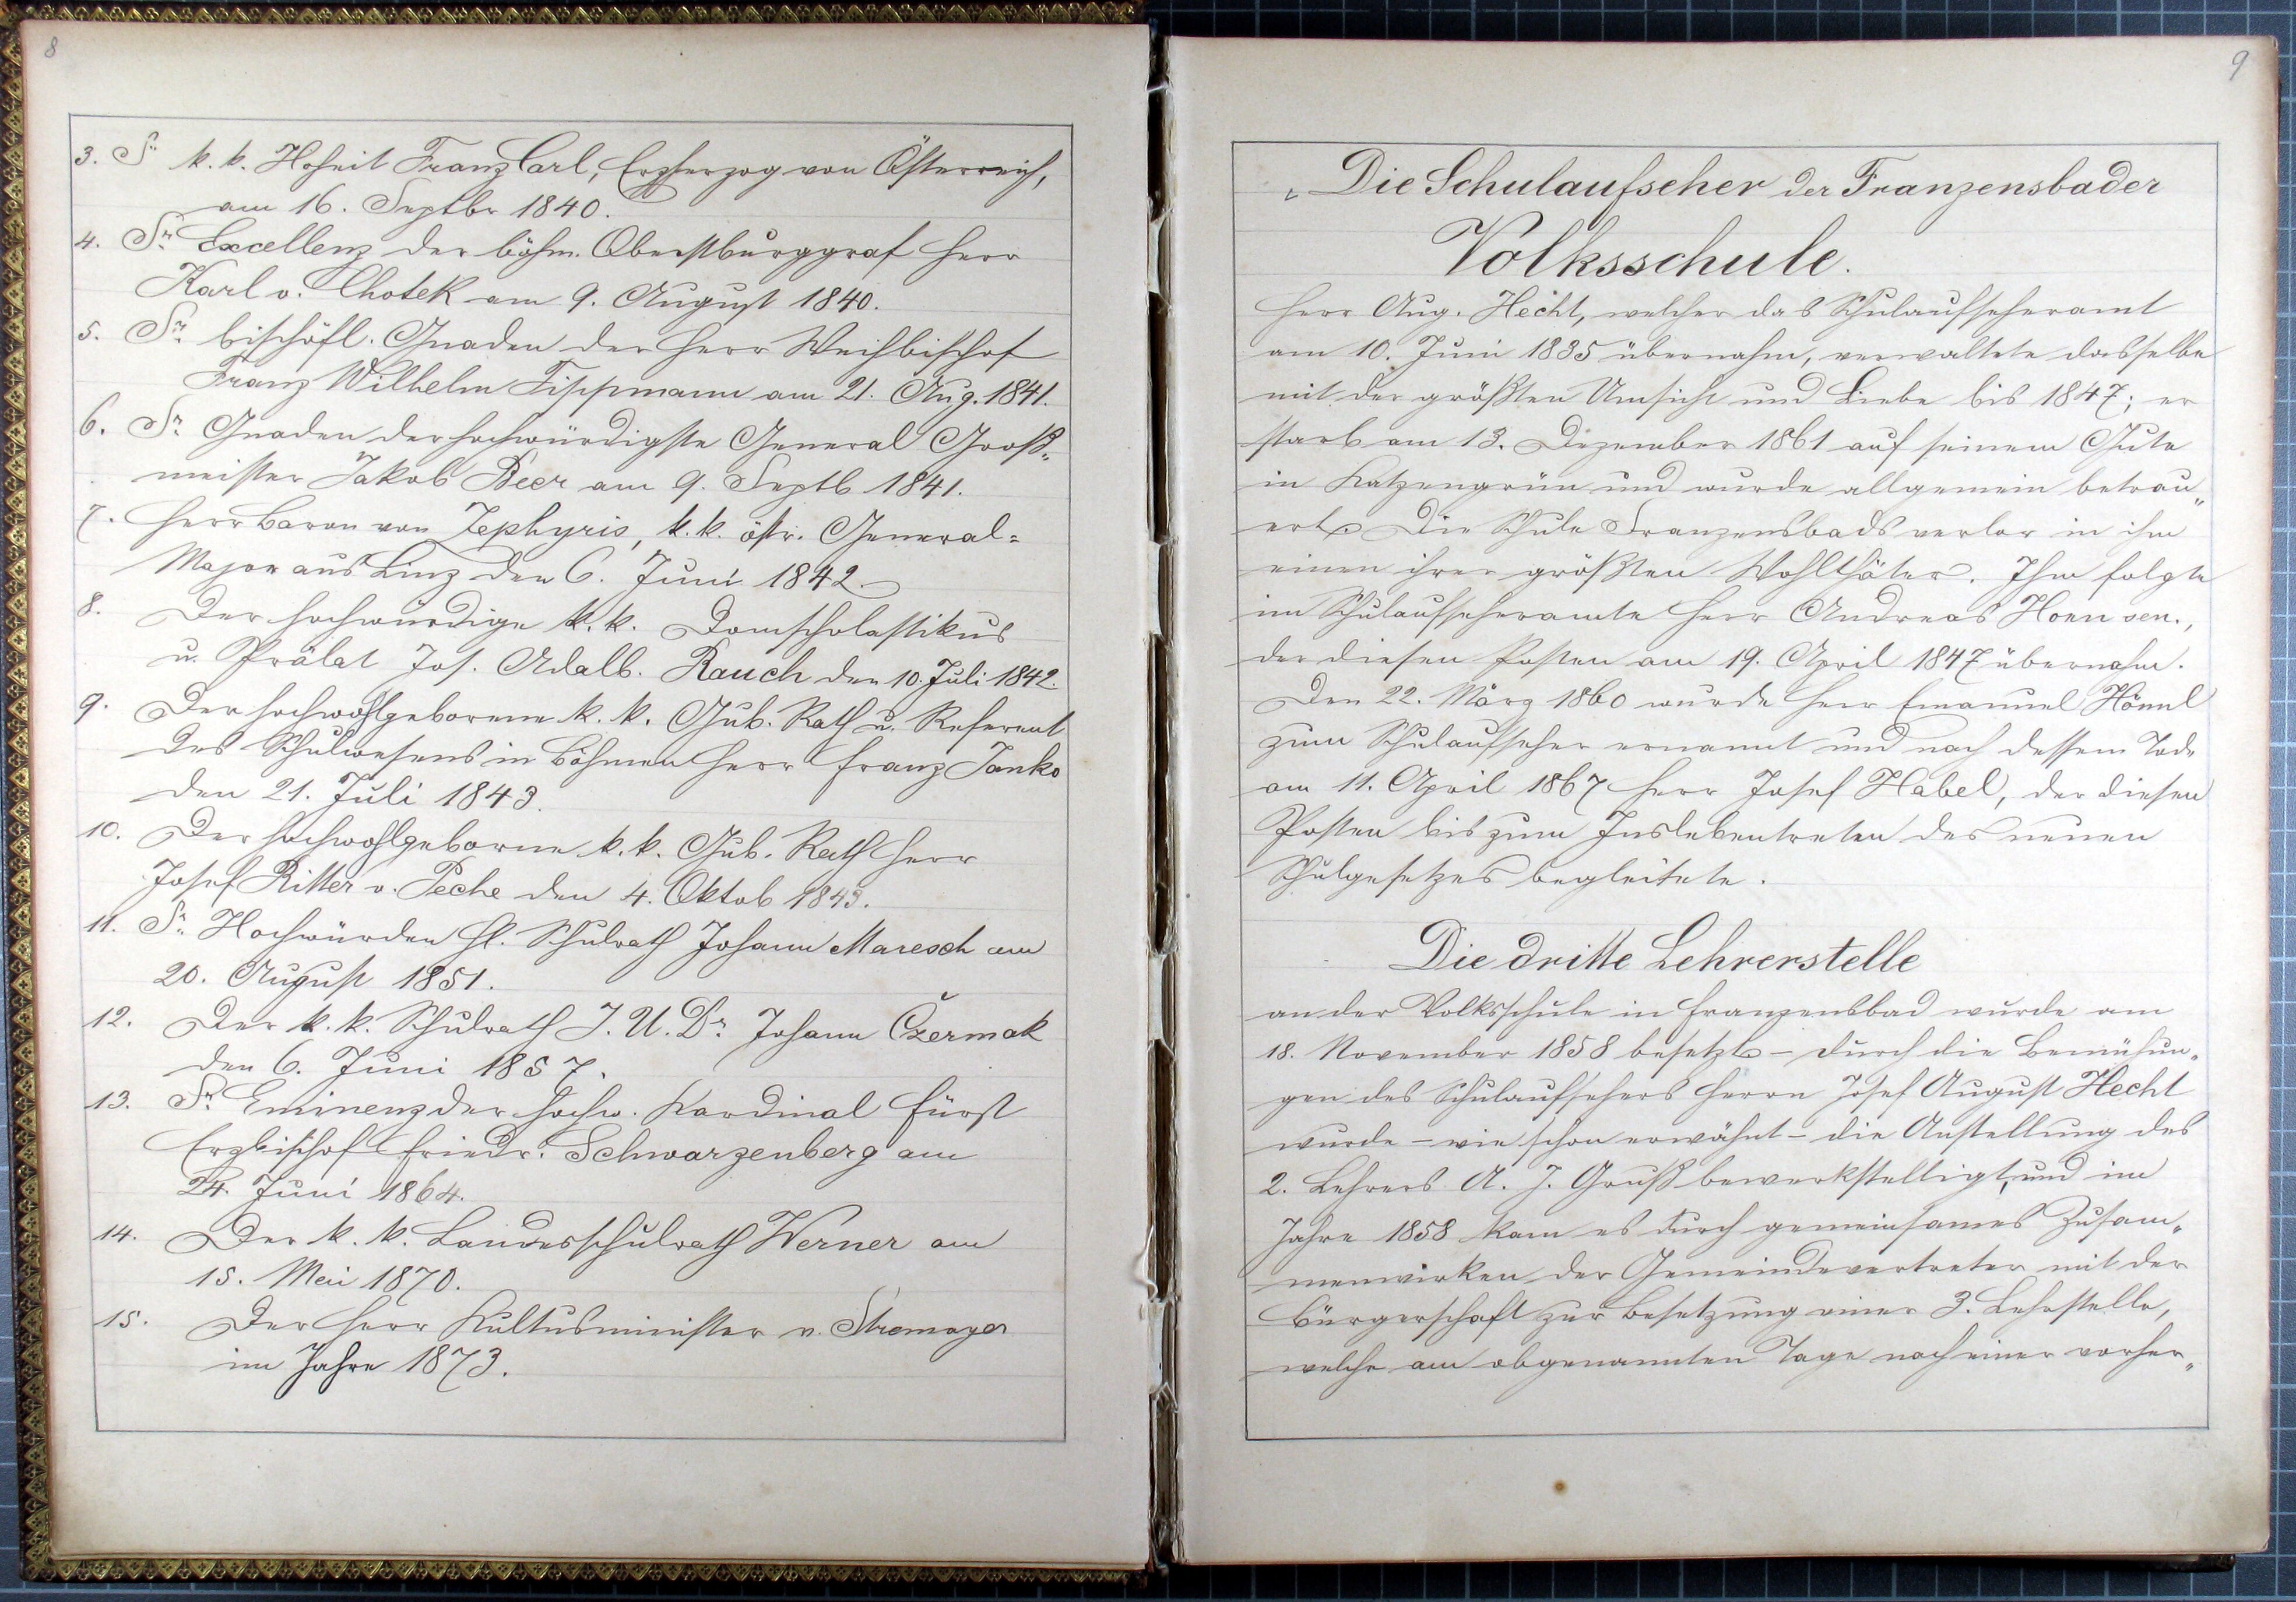 8
3. Sr k. k. Hoheit Franz Carl, Erzherzog von Österreich,
am 16. Septbr 1840.
4. Sr Excellenz der böhm. Oberstburggraf Herr
Karl v. Chotek am 9. August 1840.
5. Sr bischöfl. Gnaden der Herr Weihbischof
Franz Wilhelm Tippmann am 21. Aug. 1841.
6. Sr Gnaden der hochwürdigste General Groß„
meister Jakob Beer am 9. Septb 1841.
7. Herr Baron von Zephyris, k. k. östr. General=
Major aus Linz den 6. Juni 1842.
8. Der hochwürdige k. k. Domscholastikus
u. Prälat Jos. Adalb. Rauch den 10. Juli 1842.
9. Der hochwohlgeborene k. k. Gub. Rath u. Referent
des Schulwesens in Böhmen Herr Franz Janko
den 21. Juli 1843.
10. Der hochwohlgeborne k. k. Gub. Rath Herr
Josef Ritter v. Peche den 4. Oktob 1843.
11. Sr Hochwürden H. Schulrath Johann Maresch am
20. August 1851.
12. Der k. k. Schulrath J. U. Dr Johann Čzermak
den 6. Juni 1857.
13. Sr Eminenz der hochw. Kardinal Fürst
Erzbischof Friedr. Schwarzenberg am
24. Juni 1864.
14. Der k. k. Landesschulrath Werner am
15. Mai 1870.
15. Der Herr Kultusminister v. Stremayer
im Jahre 1873.
9
Die Schulaufseher der Franzensbader
Volksschule.
Herr Aug. Hecht, welcher das Schulaufseheramt
am 10. Juni 1835 übernahm, verwaltete dasselbe
mit der größten Umsicht und Liebe bis 1847; er
starb am 13. Dezember 1861 auf seinem Gute
in Katzengrün und wurde allgemein betrau„
ert. Die Schule Franzensbads verlor in ihm
einen ihrer größten Wohlthäter. Ihm folgte
im Schulaufseheramte Herr Andreas Hoen sen.,
der diesen Posten am 19. April 1847 übernahm.
Den 22. März 1860 wurde Herr Emanuel Hönnl
zum Schulaufseher ernannt und nach dessem Tode
am 11. April 1867 Herr Josef Habel, der diesen
Posten bis zum Inslebentreten des neuen
Schulgesetzes begleitete.
Die dritte Lehrerstelle
an der Volksschule in Franzensbad wurde am
18. November 1858 besetzt – durch die Bemühun„
gen des Schulaufsehers Herrn Josef August Hecht
wurde – wie schon erwähnt – die Anstellung des
2. Lehrers A. J. Gruß bewerkstelligt, und im
Jahre 1858 kam es durch gemeinsames Zusam„
menwirken der Gemeindevertreter mit der
Bürgerschaft zur Besetzung einer 3. Lehrstelle,
welche am obgenannten Tage nach einer vorher„